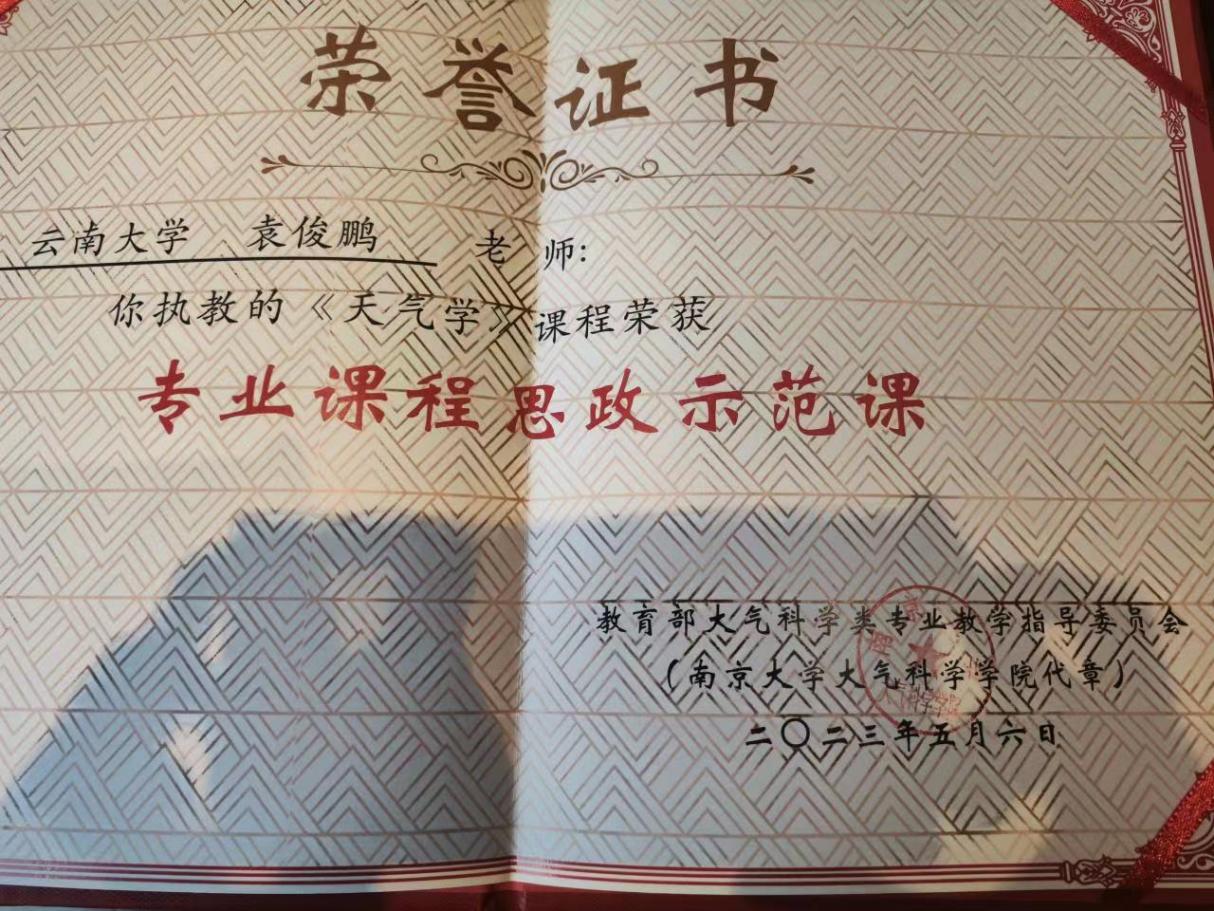 荣誉证书
云南大学 袁俊鹏 老师：
你执教的《天气学》课程荣获
专业课程思政示范课
教育部大气科学类专业教学指导委员会
（南京大学大气科学学院代章）
二〇二三年五月六日